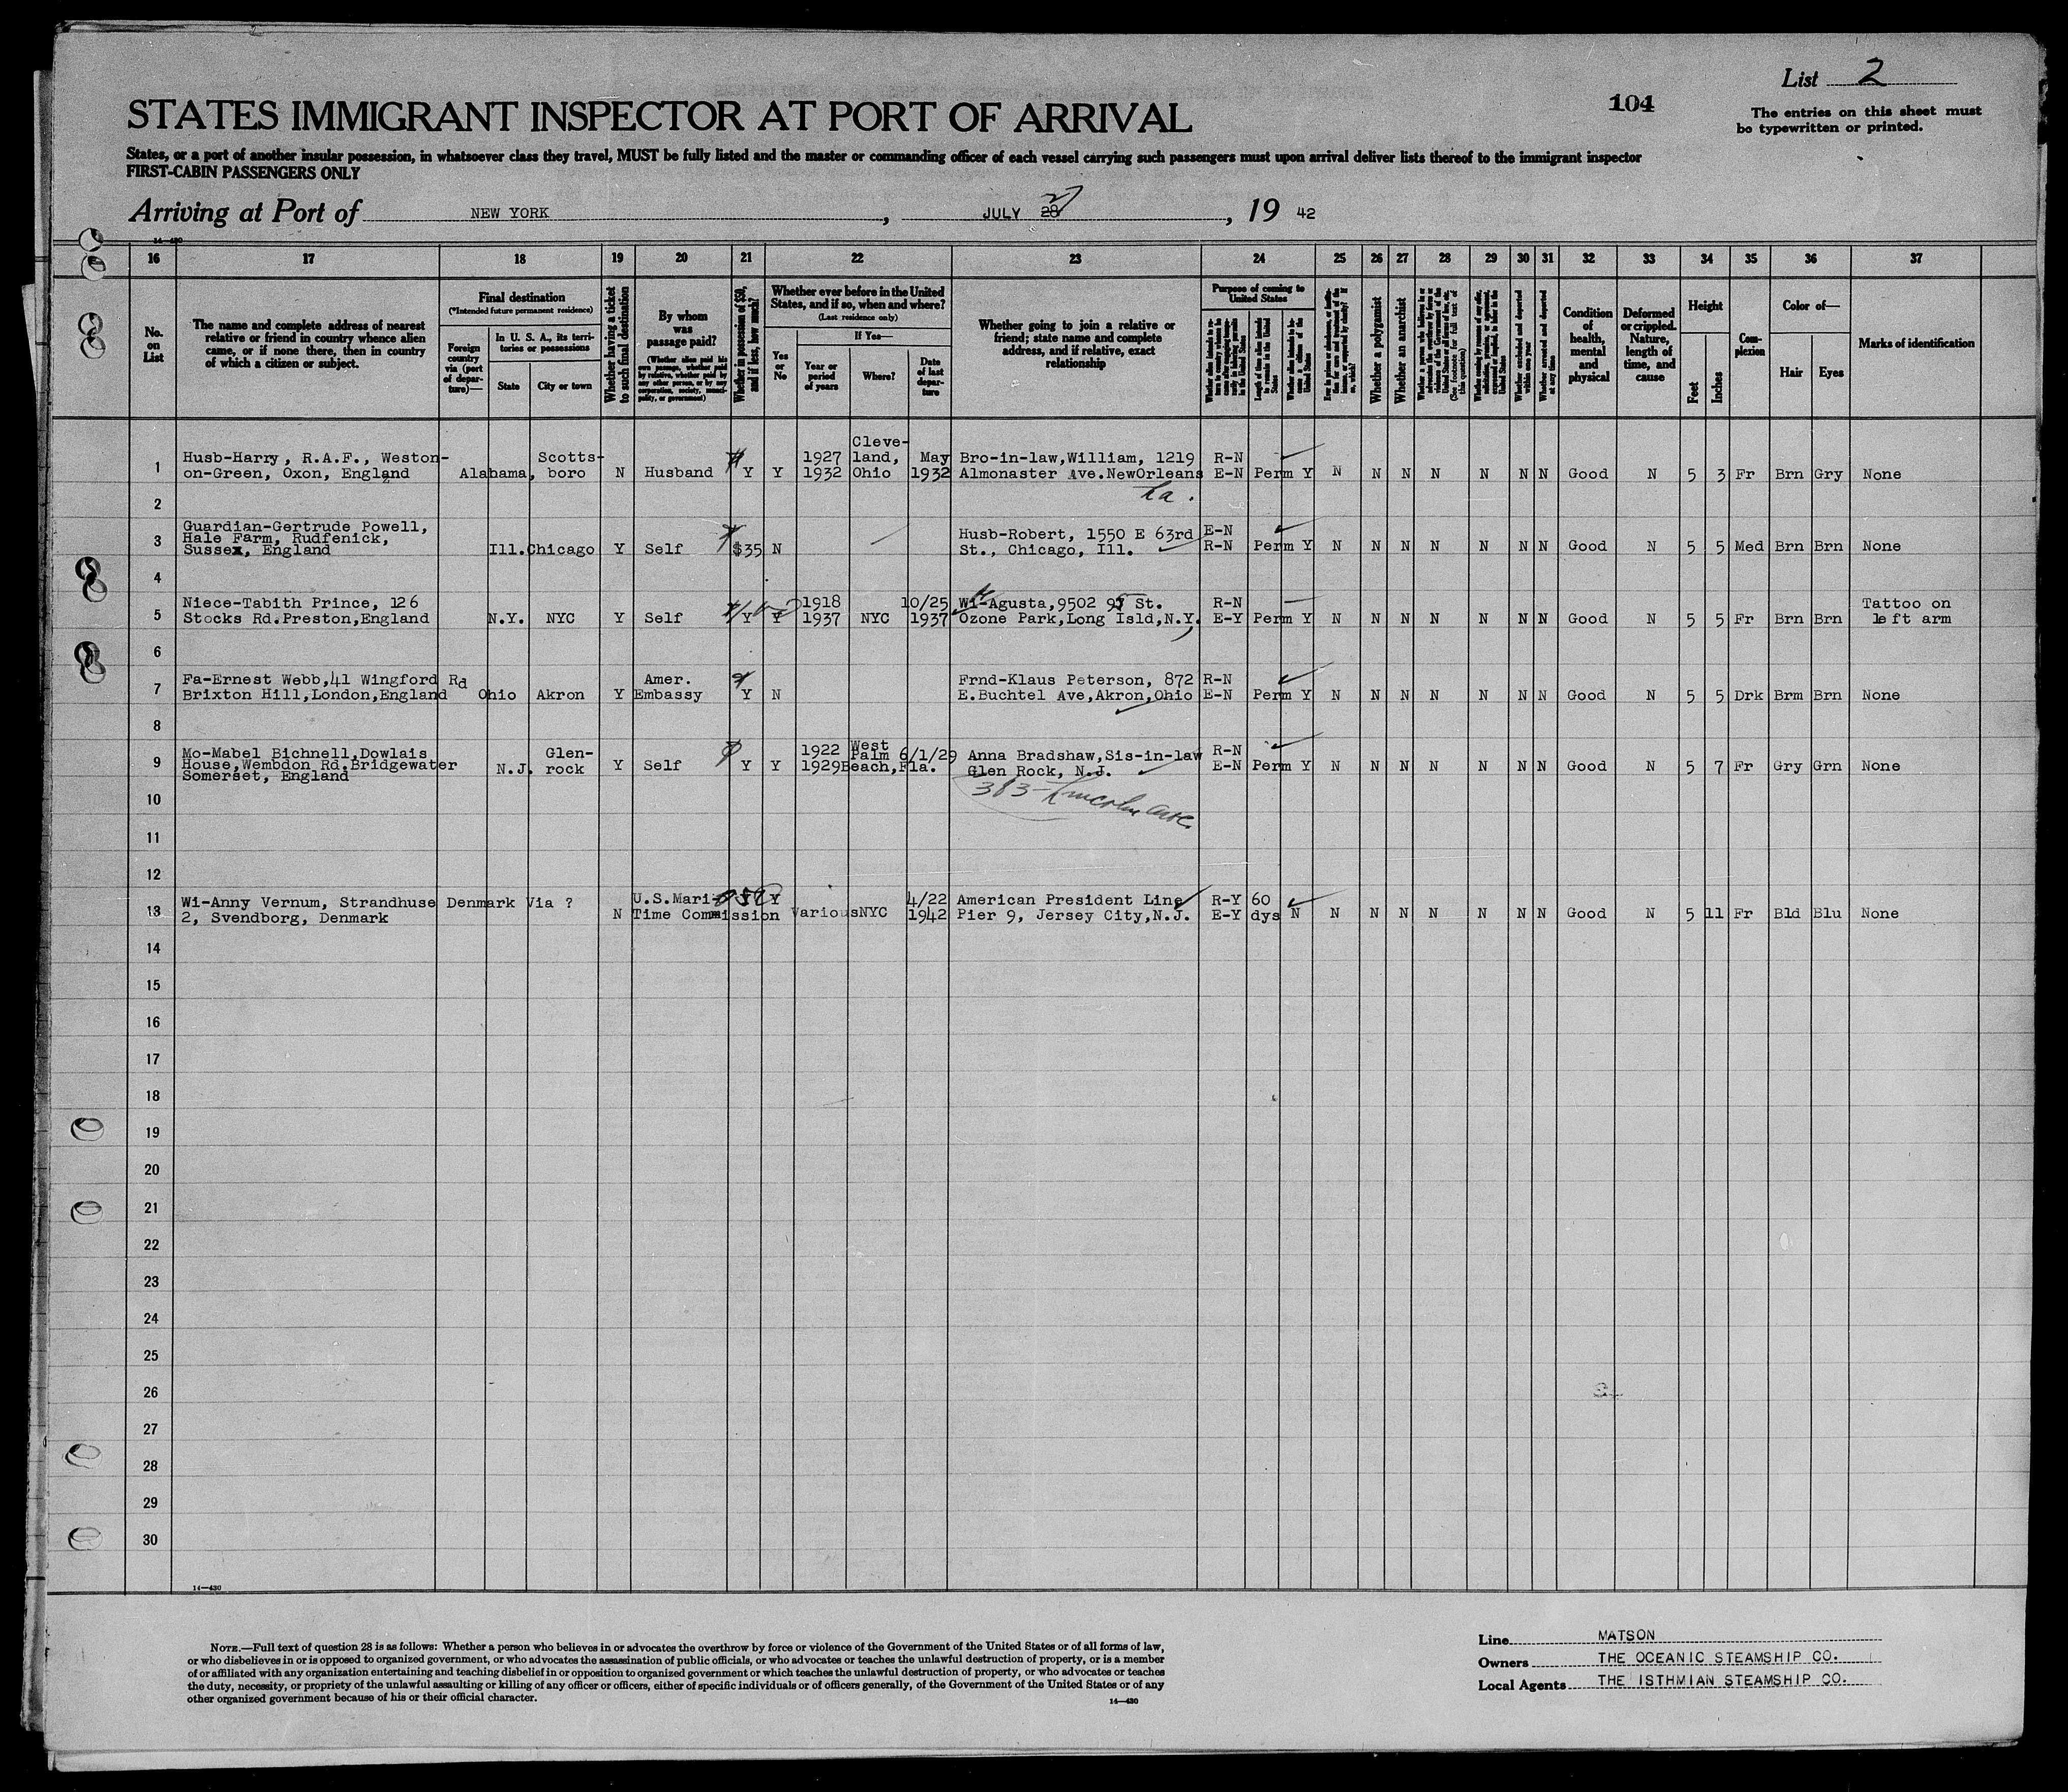 List 2
104
STATES IMMIGRANT INSPECTOR AT PORT OF ARRIVAL
The entries on this sheet must
be typewritten or printed.
States, or a port of another insular possession, in whatsoever class they travel, MUST be fully listed and the master or commanding officer of each vessel carrying such passengers must upon arrival deliver lists thereof to the immigrant inspector
FIRST-CABIN PASSENGERS ONLY
Arriving at Port of NEW YORK, JULY 28, 19 42
14—430
16 17 18 19 20 21 22 23 24 25 26 27 28 29 30 31 32 33 34 35 36 37
No.
on
List
The name and complete address of nearest
relative or friend in country whence alien
came, or if none there, then in country
of which a citizen or subject.
Final destination
(*Intended future permanent residence)
Foreign
country
via (port
of depar-
ture)—
In U. S. A., its terri-
tories or possessions
State
City or town
Whether having a ticket
to such final destination
By whom
was
passage paid?
(Whether alien paid his
own passage, whether paid
by relative, whether paid by
any other person, or by any
corporation, society, munici-
pality, or government)
Whether in possession of $50,
and if less, how much?
Whether ever before in the United
States, and if so, when and where?
(Last residence only)
Yes
or
No
If Yes—
Year or
period
of years
Where?
Date
of last
depar-
ture
Whether going to join a relative or
friend; state name and complete
address, and if relative, exact
relationship
Purpose of coming to
United States
Length of time alien intends
to remain in the United
States
Whether alien intends to be-
come a citizen of the
United States
Whether a polygamist
Whether an anarchist
(See footnote for full text of
this question)
Whether excluded and deported
within one year
Whether arrested and deported
at any time
Condition
of
health,
mental
and
physical
Deformed
or crippled.
Nature,
length of
time, and
cause
Height
Feet
Inches
Com-
plexion
Color of—
Hair
Eyes
Marks of identification
1 Husb-Harry, R.A.F., Weston-
on-Green, Oxon, England Alabama, Scotts-
boro N Husband Y Y 1927
1932 Cleve-
land,
Ohio May
1932 Bro-in-law,William, 1219
Almonaster Ave.NewOrleans
La. R-N
E-N Perm Y N N N N N N N Good N 5 3 Fr Brn Gry None
2
3 Guardian-Gertrude Powell,
Hale Farm, Rudfenick,
Sussex, England Ill. Chicago Y Self $35 N Husb-Robert, 1550 E 63rd
St., Chicago, Ill. E-N
R-N Perm Y N N N N N N N Good N 5 5 Med Brn Brn None
4
5 Niece-Tabith Prince, 126
Stocks Rd.Preston,England N.Y. NYC Y Self Y Y 1918
1937 NYC 10/25
1937 Wi-Agusta,9502 95 St.
Ozone Park,Long Isld,N.Y. R-N
E-Y Perm Y N N N N N N N Good N 5 5 Fr Brn Brn Tattoo on
left arm
6
7 Fa-Ernest Webb,41 Wingford Rd
Brixton Hill,London,England Ohio Akron Y Amer.
Embassy Y N Frnd-Klaus Peterson, 872
E.Buchtel Ave,Akron,Ohio R-N
E-N Perm Y N N N N N N N Good N 5 5 Drk Brm Brn None
8
9 Mo-Mabel Bichnell,Dowlais
House,Wembdon Rd.Bridgewater
Somerset, England N.J. Glen-
rock Y Self Y Y 1922
1929 West
Palm
Beach,Fla. 6/1/29 Anna Bradshaw,Sis-in-law
Glen Rock, N.J.
383-Lincoln Ave. R-N
E-N Perm Y N N N N N N N Good N 5 7 Fr Gry Grn None
10
11
12
13 Wi-Anny Vernum, Strandhuse
2, Svendborg, Denmark Denmark Via ? N U.S.Mari-
Time Commission Y Various NYC 4/22
1942 American President Line
Pier 9, Jersey City,N.J. R-Y
E-Y 60
dys N N N N N N N N Good N 5 11 Fr Bld Blu None
14
15
16
17
18
19
20
21
22
23
24
25
26
27
28
29
30
14—430
NOTE.—Full text of question 28 is as follows: Whether a person who believes in or advocates the overthrow by force or violence of the Government of the United States or of all forms of law,
or who disbelieves in or is opposed to organized government, or who advocates the assassination of public officials, or who advocates or teaches the unlawful destruction of property, or is a member
of or affiliated with any organization entertaining and teaching disbelief in or opposition to organized government or which teaches the unlawful destruction of property, or who advocates or teaches
the duty, necessity, or propriety of the unlawful assaulting or killing of any officer or officers, either of specific individuals or of officers generally, of the Government of the United States or of any
other organized government because of his or their official character.
14—430
Line MATSON
Owners THE OCEANIC STEAMSHIP CO.
Local Agents THE ISTHMIAN STEAMSHIP CO.